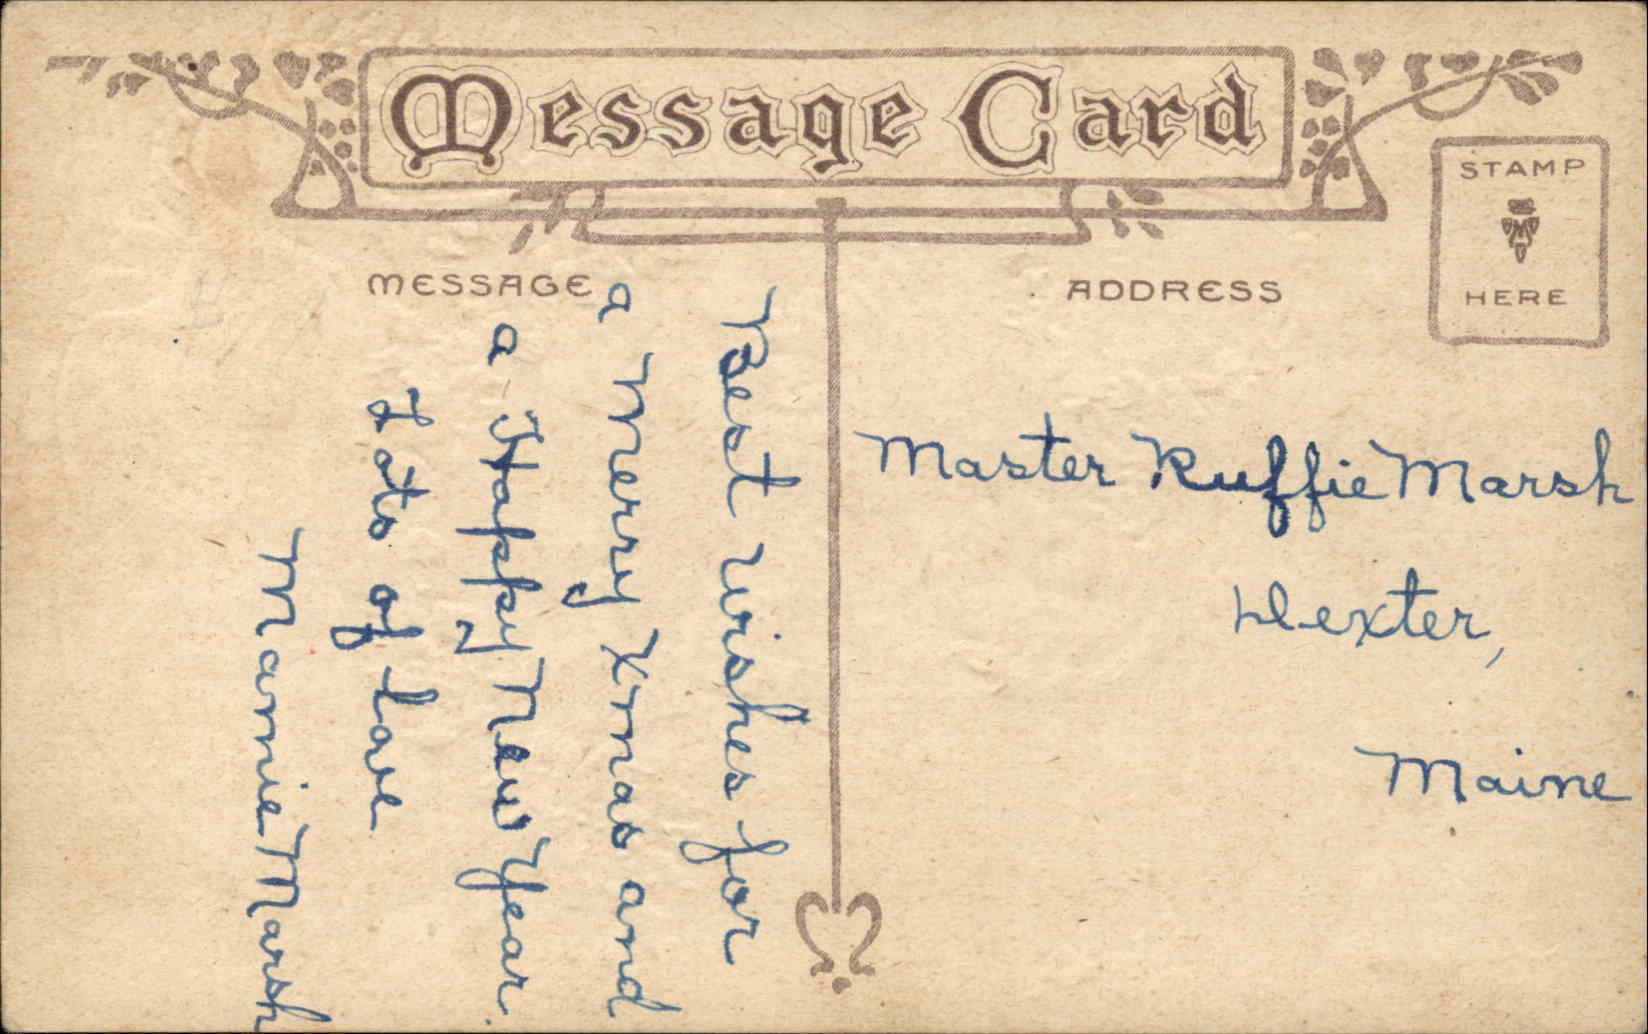 Message Card
MESSAGE
ADDRESS
STAMP
HERE
Best wishes for
a Merry Xmas and
a Happy New Year.
Lots of love
Mamie Marsh
Master Ruffie Marsh
Dexter,
Maine